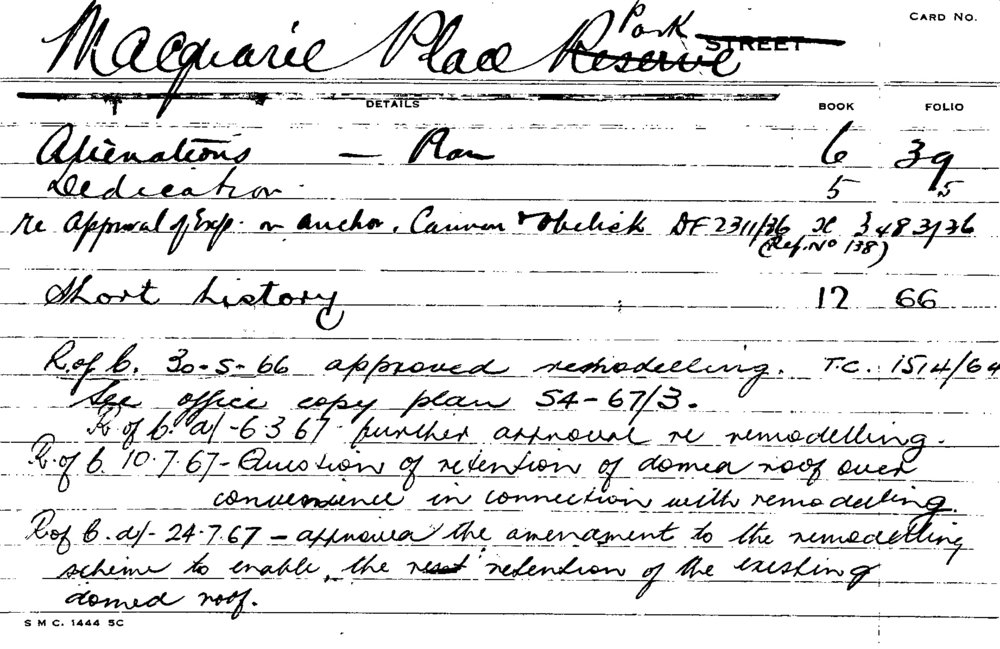 CARD No.
Macquarie Place Reserve Park STREET
DETAILS BOOK FOLIO
Alienations — Plan 6 39
Dedication. 5 5
re approval of Exp. on anchor, Cannon & Obelisk DF 2311/36 3483/36
(Ref. No 138)
Short history 17 66
R. of C. 30-5-66 approved remodelling. T.C. 1514/64
See office copy plan S4-67/3.
R of C. d/- 6 3 67 further approval re remodelling.
R. of C. 10.7.67 - Question of retention of domed roof over
convenience in connection with remodelling.
R of C. d/- 24.7.67 - approved the amendment to the remodelling
scheme to enable the retention of the existing
domed roof.
S M C. 1444 5C